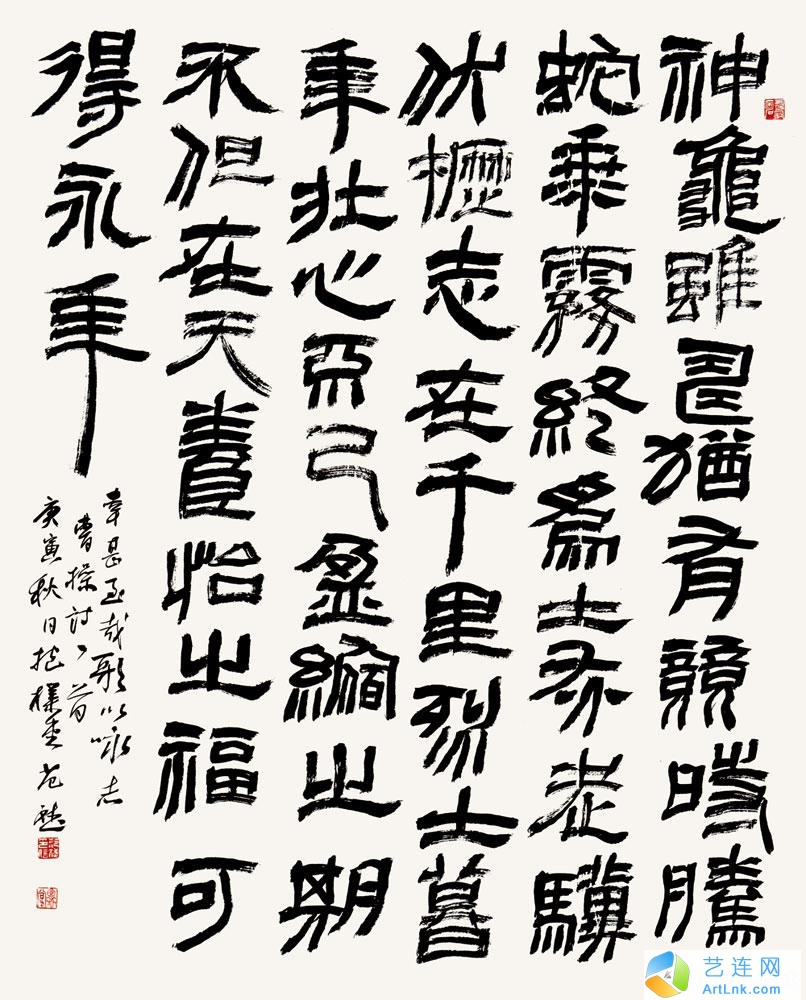 神龜雖壽猶有競時騰
蛇乘霧終爲土灰老驥
伏櫪志在千里烈士暮
年壯心不已盈縮之期
不但在天養怡之福可
得永年
幸甚至哉歌以咏志
曹操詩一首
庚寅秋日抱樸
艺连网
ArtLnk.com